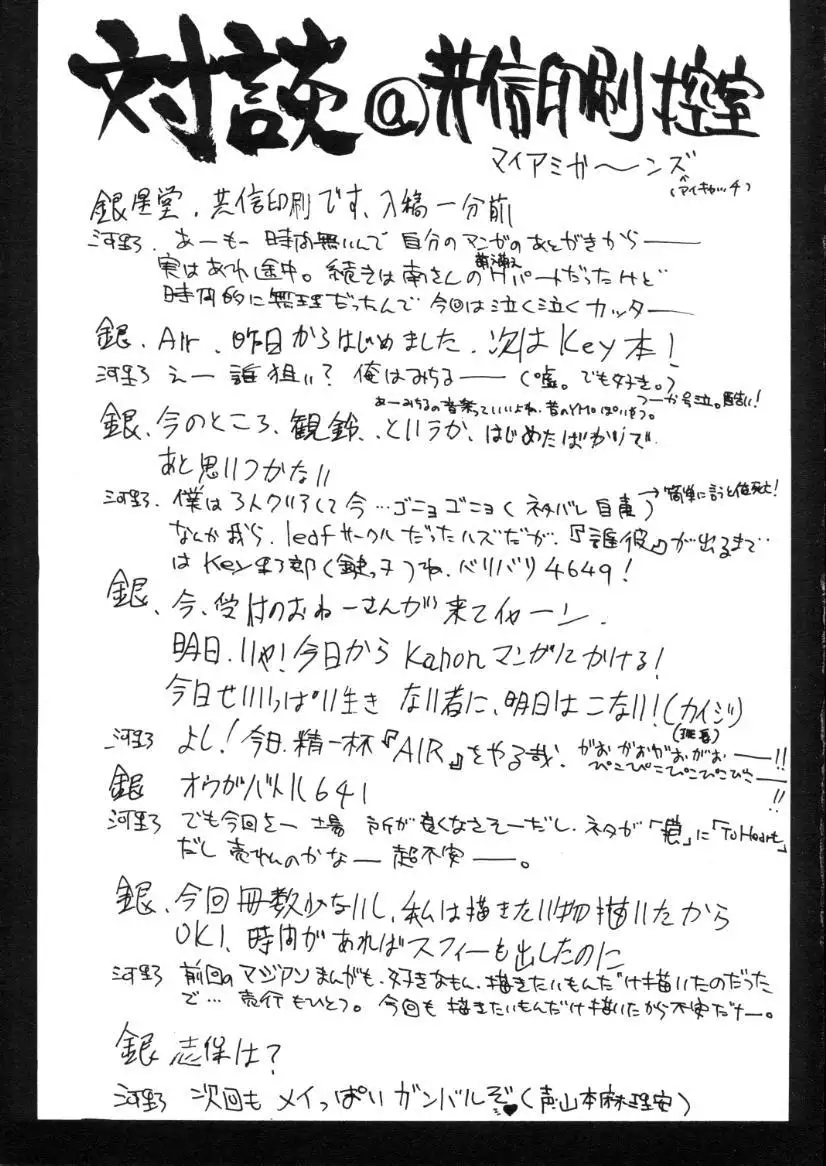 対談@共信印刷控室
マイアミガ〜ンズ
(アイキャッチ)
銀星堂、共信印刷です、入稿一分前
河野、あーもー時間無いんで自分のマンガのあとがきから——
実はあれ途中。続きは南さんの萌燃えHパートだったけど
時間的に無理だったんで今回は泣く泣くカッター
銀、Air、昨日からはじめました、次はKey本!
河野 えー誰狙い?俺はみちる——(嘘。でも好き。)
つーか号泣。酷い!
あーみちるの音楽っていいよね、昔のYMOっぽい
銀、今のところ、観鈴、というか、はじめたばかりで
あと思いつかない
河野、僕は3人クリアして今…ゴニョゴニョ(ネタバレ自粛)→簡単に言うと俺死亡!
なんか我ら、leafサークルだったハズだが、『誰彼』が出るまで
はKey野郎(鍵っ子)ね、バリバリ4649!
銀、今、受付のおねーさんが来てイャーン、
明日、いや!今日からKanonマンガにかける!
今日せいいっぱい生きない者に、明日はこない!(カイジ)
(班長)
河野 よし!今日、精一杯『AIR』をやる哉、がおがおがおがお——!!
ぴこぴこぴこぴこぴこ——!!
銀 オウガバトル64!
河野 でも今回さー 場所が良くなさそーだし、ネタが「鎖」に「ToHeart」
だし売れんのかなー超不安——。
銀、今回冊数少ないし、私は描きたい物描いたから
OK!、時間があればスフィーも出したのに
河野 前回のマジアンまんがも、好きなもん、描きたいもんだけ描いたのだった
で…売行もひとつ。今回も描きたいもんだけ描いたから不安だナー。
銀 志保は?
河野 次回もメイっぱいガンバルぞ♥(声山本麻理安)